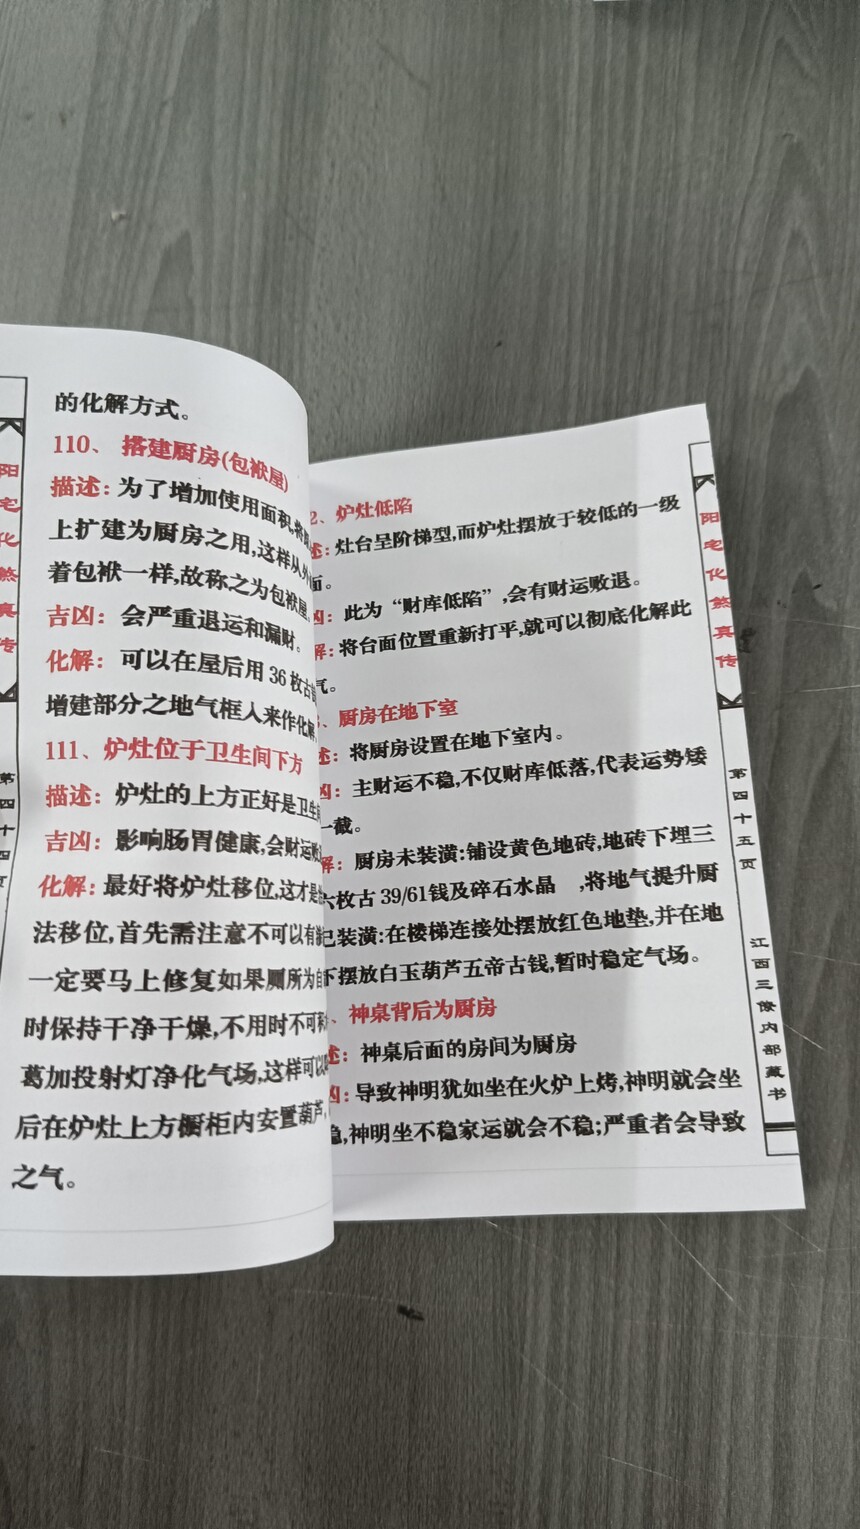 的化解方式。
110、搭建厨房(包袱屋)
描述:为了增加使用面积,将
上扩建为厨房之用,这样从外
着包袱一样,故称之为包袱屋。
吉凶:会严重退运和漏财。
化解:可以在屋后用36枚古
增建部分之地气框人来作化解
111、炉灶位于卫生间下方
描述:炉灶的上方正好是卫生
吉凶:影响肠胃健康,会财运
化解:最好将炉灶移位,这才是
法移位,首先需注意不可以有
一定要马上修复如果厕所为
时保持干净干燥,不用时不可
葛加投射灯净化气场,这样可以
后在炉灶上方橱柜内安置葫芦,
之气。
第四十四页
阳宅化煞真传
2、炉灶低陷
述:灶台呈阶梯型,而炉灶摆放于较低的一级
面。
凶:此为“财库低陷”,会有财运败退。
解:将台面位置重新打平,就可以彻底化解此
气。
、厨房在地下室
述:将厨房设置在地下室内。
凶:主财运不稳,不仅财库低落,代表运势矮
一截。
解:厨房未装潢:铺设黄色地砖,地砖下埋三
六枚古39/61钱及碎石水晶 ,将地气提升厨
已装潢:在楼梯连接处摆放红色地垫,并在地
下摆放白玉葫芦五帝古钱,暂时稳定气场。
、神桌背后为厨房
述:神桌后面的房间为厨房
凶:导致神明犹如坐在火炉上烤,神明就会坐
稳,神明坐不稳家运就会不稳;严重者会导致
阳宅化煞真传
第四十五页
江西三僚内部藏书